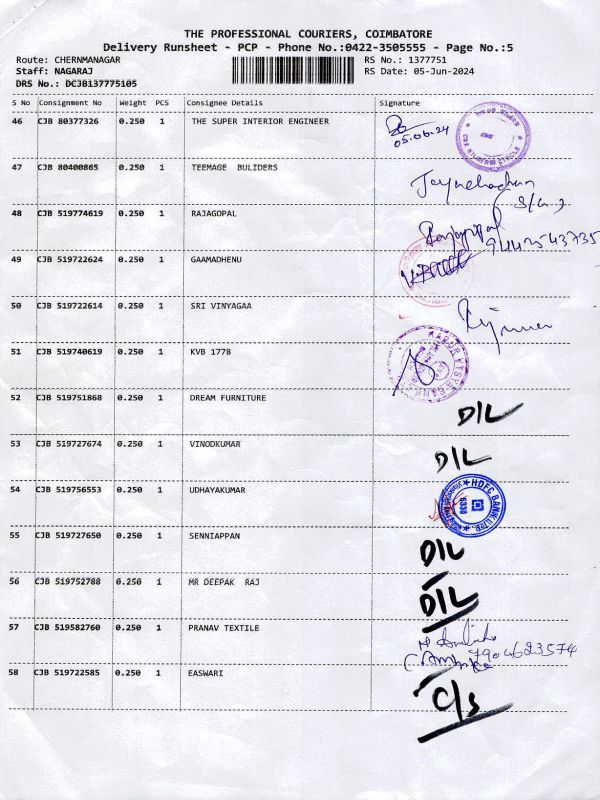 THE PROFESSIONAL COURIERS, COIMBATORE
Delivery Runsheet - PCP - Phone No.:0422-3505555 - Page No.:5
Route: CHERNMANAGAR RS No.: 1377751
Staff: NAGARAJ RS Date: 05-Jun-2024
DRS No.: DCJB137775105
S No Consignment No Weight PCS Consignee Details Signature
46 CJB 80377326 0.250 1 THE SUPER INTERIOR ENGINEER
05.06.24
47 CJB 80400865 0.250 1 TEEMAGE BULIDERS
48 CJB 519774619 0.250 1 RAJAGOPAL
Rajagopal
9442543735
49 CJB 519722624 0.250 1 GAAMADHENU
50 CJB 519722614 0.250 1 SRI VINYAGAA
51 CJB 519740619 0.250 1 KVB 1778
KARUR VYSYA BANK
52 CJB 519751868 0.250 1 DREAM FURNITURE
D/L
53 CJB 519727674 0.250 1 VINODKUMAR
D/L
54 CJB 519756553 0.250 1 UDHAYAKUMAR
HDFC BANK LTD.
6330
55 CJB 519727650 0.250 1 SENNIAPPAN
D/L
56 CJB 519752788 0.250 1 MR DEEPAK RAJ
D/L
57 CJB 519582760 0.250 1 PRANAV TEXTILE
7904623574
58 CJB 519722585 0.250 1 EASWARI
C/s